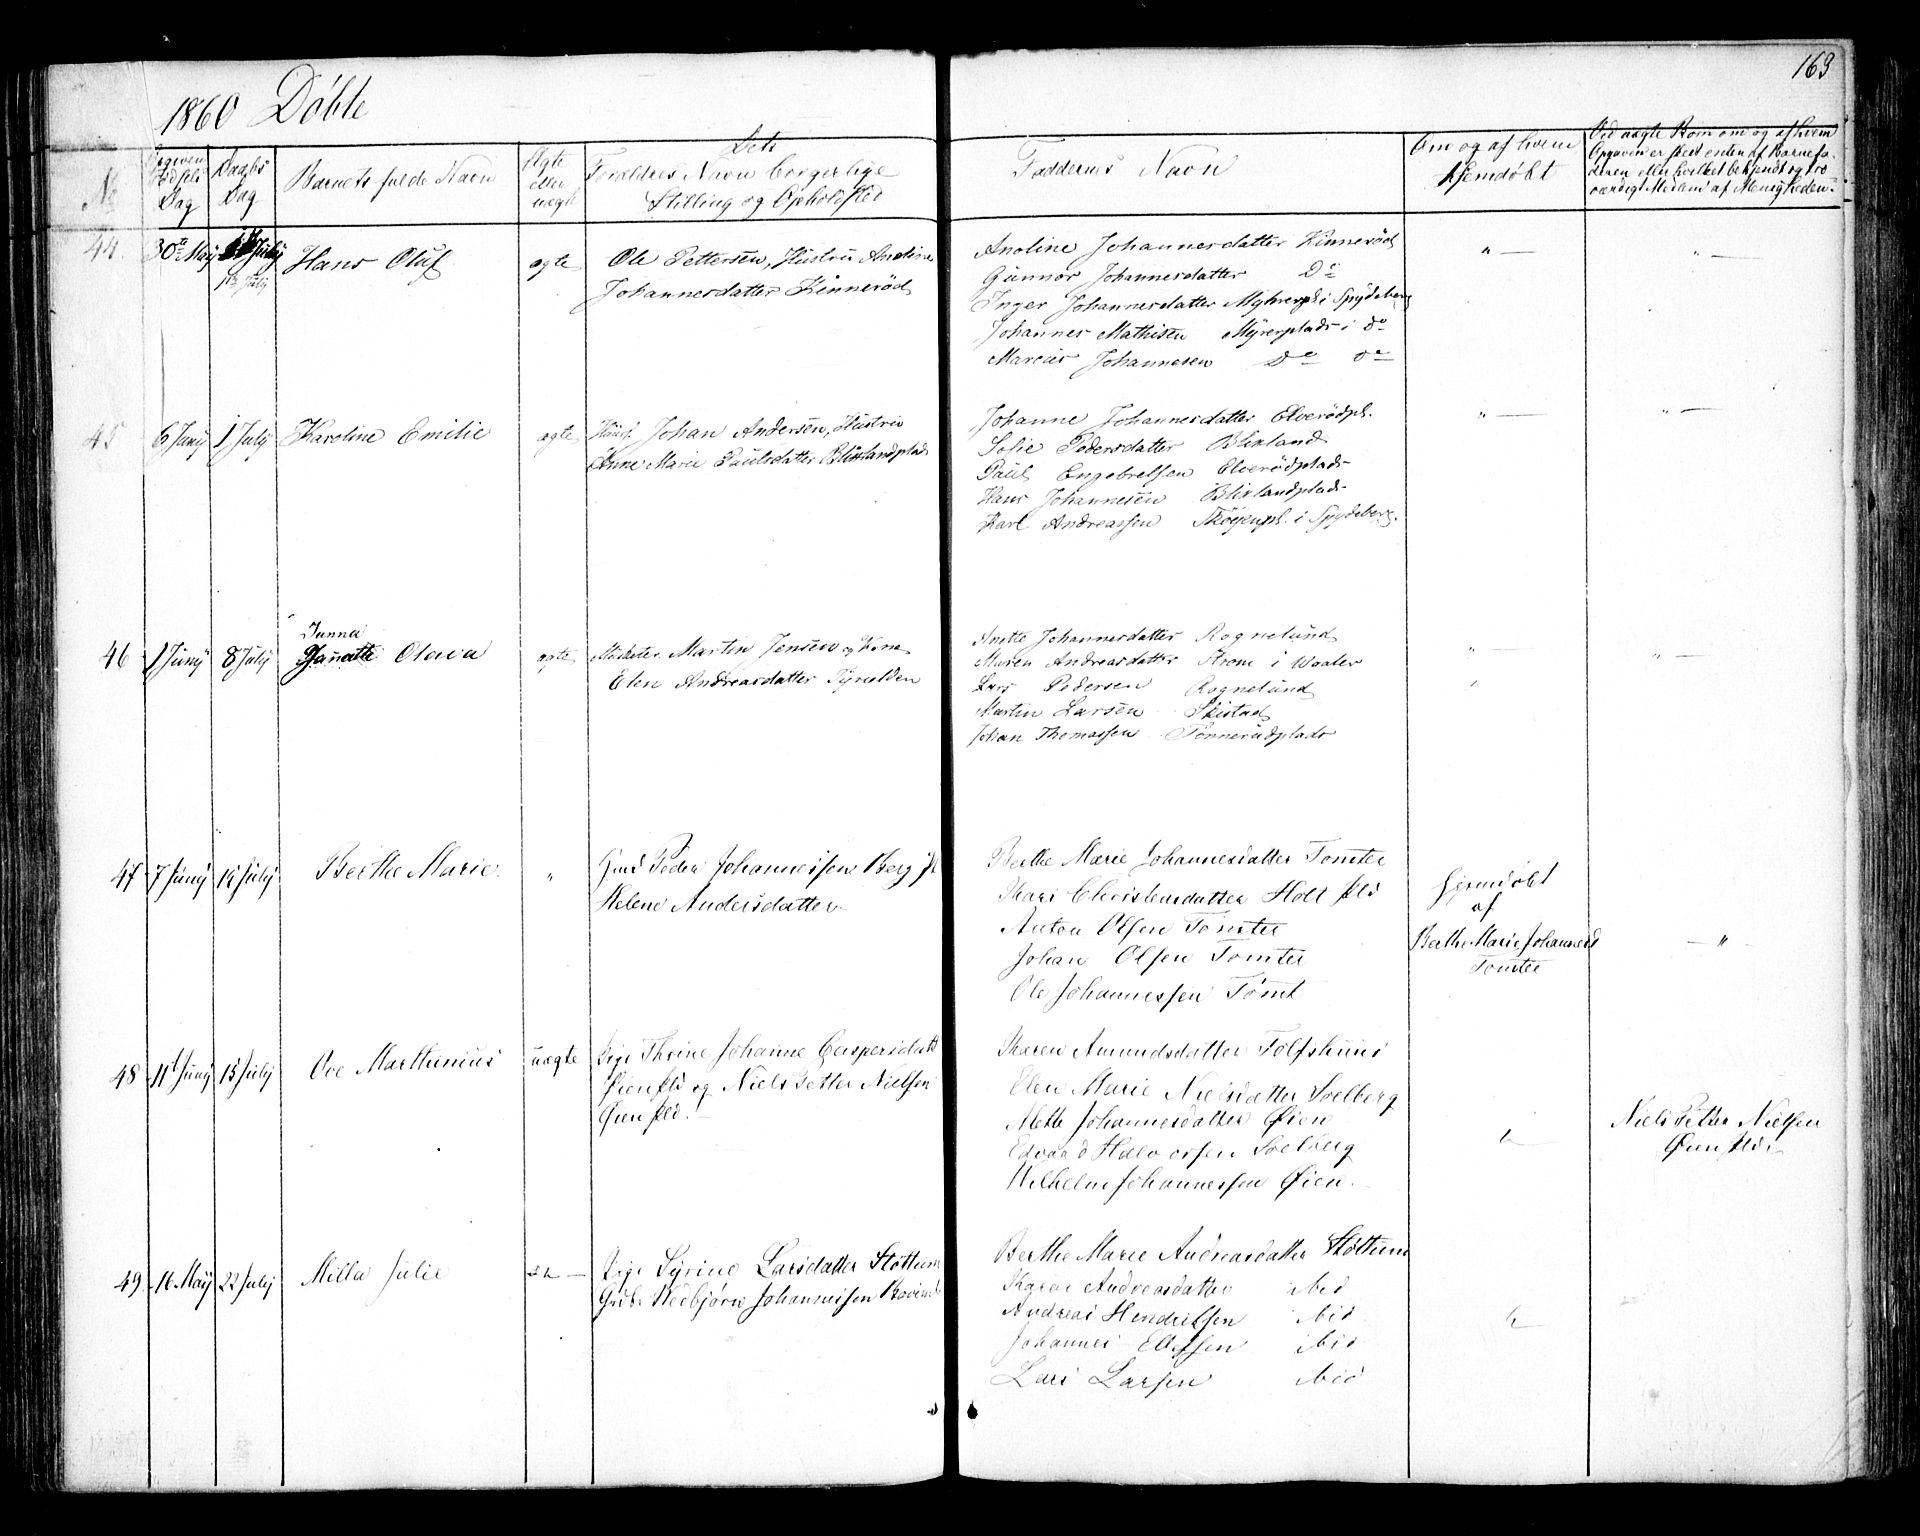 163
1860 Döbte
No
Opgiven Fødsels Dag
Daabs Dag
Barnets fulde Navn
Ægte eller uægte
Dets
Foreldres Navn borgerlige
Stilling og Opholdsted
Faddernes Navn
Om og af hvem
hjemdøbt
Ved uægte Born om og af hvem
Opgaven er skeet enten af Barnefa-
deren eller hvilket bekjendt og tro
værdigt Medlem af Menigheden.
44 30te May 1te July Hans Oluf ægte Ole Pettersen, Hustru Anoline
Johannesdatter Kinneröd
Anoline Johannesdatter Kinneröd
Gunnor Johannesdatter Do
Inger Johannesdatter Myhrerpl. i Spydeberg
Johannes Mathisen Myrerplads i do
Marcus Johannesen Do do
45 6 Juny 1 July Karoline Emilie ægte Huusf. Johan Andersen, Hustru
Anne Marie Paulsdatter Blixlandplads
Johanne Johannesdatter Elverödpl.
Sofie Pedersdatter Blixland
Paul Engebretsen Elverödplads
Hans Johannesen Blixlandplads
Karl Andreassen Skøyenpl. i Spydeberg.
46 1 Juny 8 July Janna Olava ægte Martin Jensen og Kone
Elen Andreasdatter
Anette Johannesdatter Rognelund
Maren Andreasdatter Strom i Waaler
Lars Pedersen Rognelund
Martin Larsen Skistad
Johan Thomassen Tonnerudplads
47 7 Juny 14 July Berthe Marie " Gmd Peder Johannessen Berg pl
Helene Andersdatter
Berthe Marie Johannesdatter Tomter
Kari Christensdatter Holt pld
Anton Olsen Tomter
Johan Olsen Tomter
Ole Johannessen Tomt
hjemdøbt
af
Berthe Marie Johannesd
Tomter
— " —
48 11 Juny 15 July Ove Marthinius uægte Pige Thrine Johanne Caspersdatt
Øien pld og Niels Petter Nielsen
Øien pld.
Karen Amundsdatter
Elen Marie Nielsdatter Solberg
Mette Johannesdatter Øien
Edvard Halvorsen Solberg
Wilhelm Johannessen Øien.
Niels Petter Nielsen
Øien pld.
49 16 May 22 July Milla Julie Pige Syrine Larsdatter Støttum
Gub. Wedbjørn Johannessen
Berthe Marie Andreasdatter Støttum
Karen Andreasdatter ibid
Andreas Hendriksen ibid
Johannes Ellefsen ibid
Lars Larsen ibid